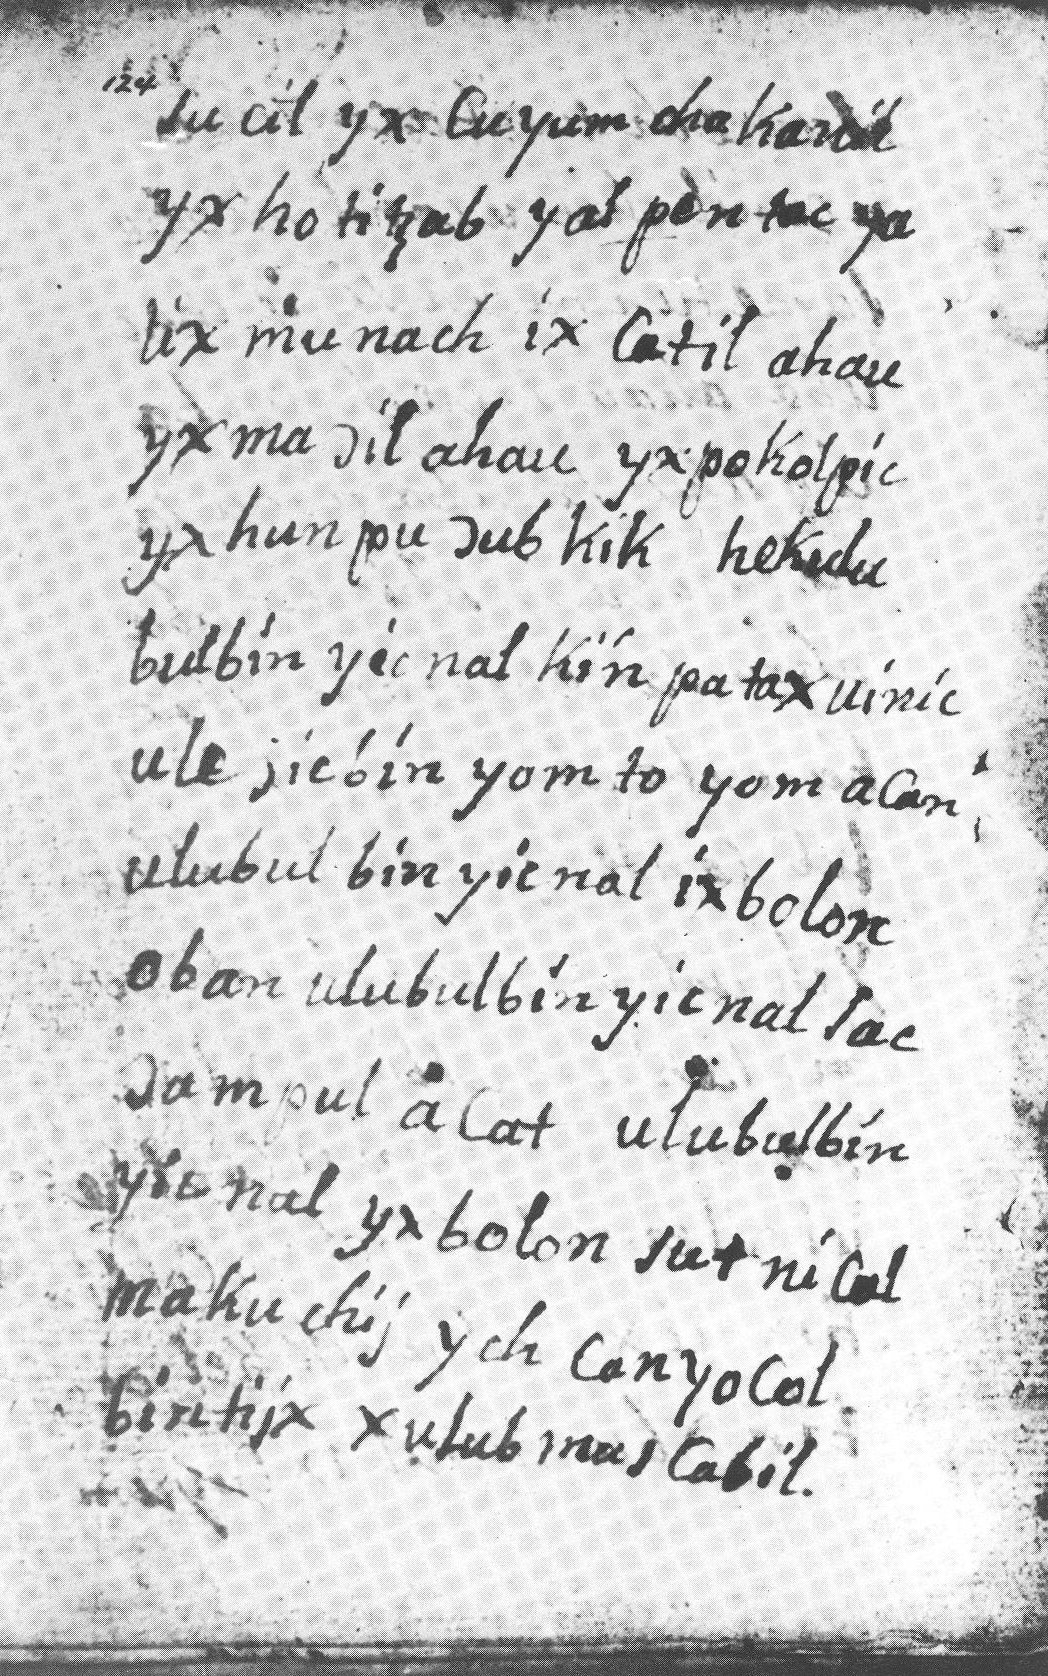 124
su cil yx Cuyum cha kanil
yx ho ti tzab yal pen tac ya
lix mu nach ix Catil ahau
yx ma ɔil ahau yx pokol pic
yx hun pu ɔub kik hek u lu
bul bin yic nal kin pa tax uinic
u le ɔic bin yom to yom a Can
u lu bul bin yic nal ix bolon
o ban u lu bul bin yic nal sac
ɔam pul a Cat u lu bul bin
yic nal yx bolon sut ni Cal
ma ku chij ych Can yo Col
bin tijx x u lub mas Cabil.